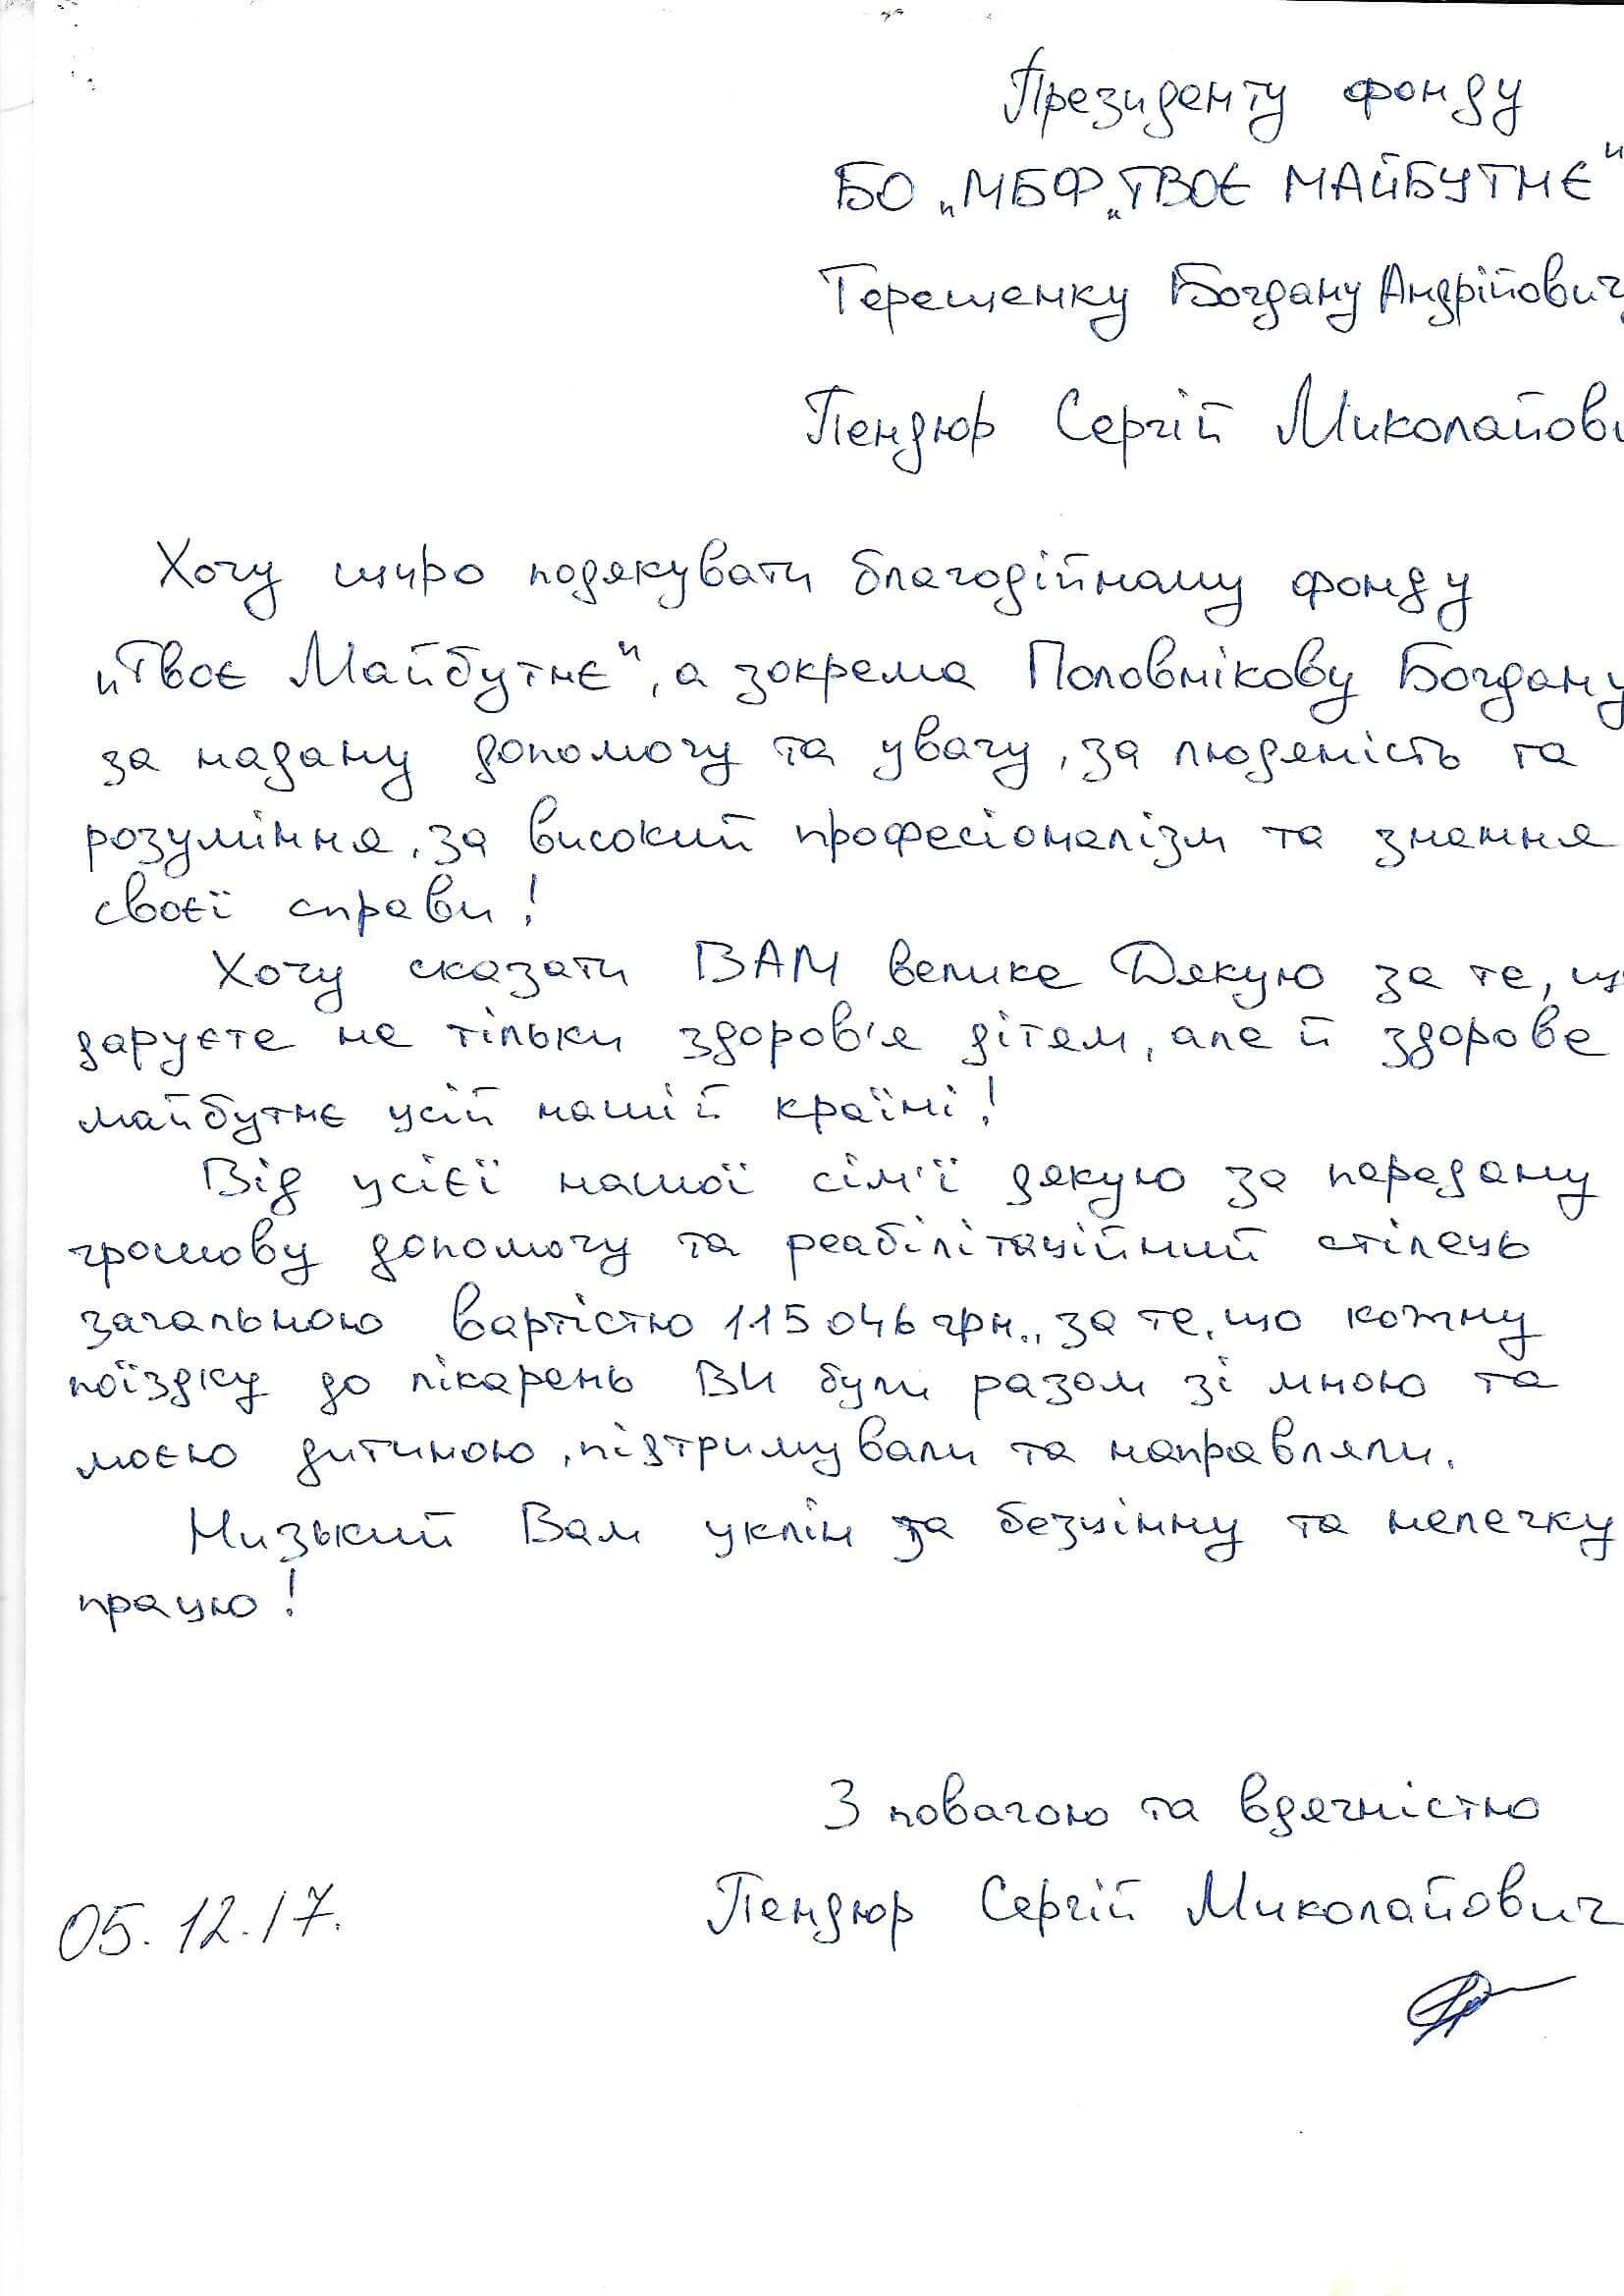 Президенту фонду
БО „МБФ „ТВОЄ МАЙБУТНЄ"
Терещенку Богдану Андрійович
Пендюр Сергій Миколайови
Хочу щиро подякувати благодійному фонду
„Твоє Майбутнє", а зокрема Половнікову Богдану
за надану допомогу та увагу, за людяність та
розуміння, за високий професіоналізм та знання
своєї справи!
Хочу сказати ВАМ велике Дякую за те, щ
даруєте не тільки здоров'я дітям, але й здорове
майбутнє усій нашій країні!
Від усієї нашої сім'ї дякую за передану
грошову допомогу та реабілітаційний стілець
загальною вартістю 115 046 грн., за те, що кожну
поїздку до лікарень ВИ були разом зі мною та
моєю дитиною, підтримували та направляли.
Низький Вам уклін за безцінну та нелегку
працю!
З повагою та вдячністю
Пендюр Сергій Миколайович
05.12.17.